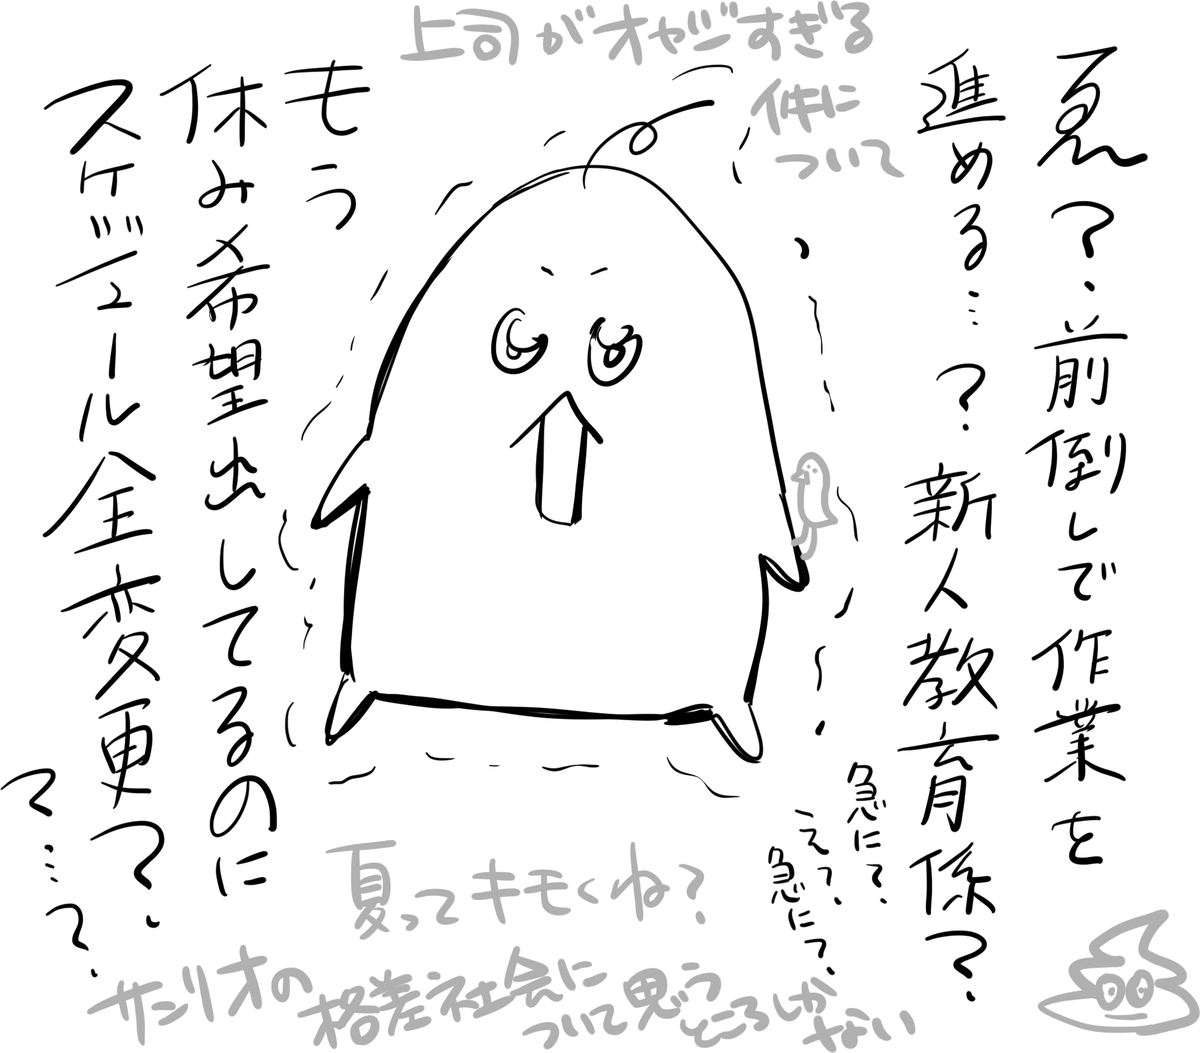 上司がオヤジすぎる
件に
ついて
ゑ?.前倒しで作業を
進める…?.新人教育係?.
急にて.
えて.
急にて.
もう
休み希望出してるのに
スケジュール全変更?.
て…?.
夏ってキモくね?
サンリオの
格差社会に
ついて思う
ところしか
ない